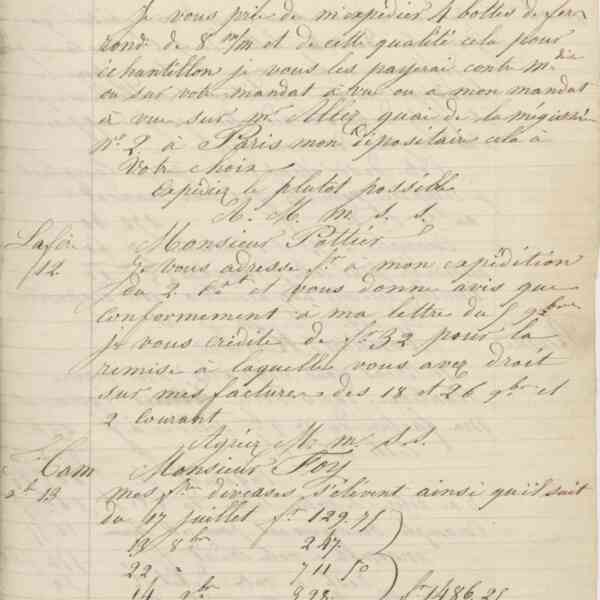 Je vous prie de m'expédier 4 bottes de fer
rond de 8 m/m et de cette qualité cela pour
échantillon je vous les payerai contre
ou sur votre mandat à vue ou à mon mandat
à vue sur mr quai de la mégisserie
No 2 à Paris mon dépositaire cela à
votre choix
Expédiez le plutôt possible
A. M. m. s. s.
12.
Monsieur Pottier
Je vous adresse fre à mon expédition
du 2 et vous donne avis que
conformement à ma lettre du 5 9bre
je vous crédite de fr 32 pour la
remise à laquelle vous avez droit
sur mes factures des 18 et 26 9bre et
2 courant
Agréez M. m. s. s.
Cam
13
Monsieur Foy
mes fres diverses s'élèvent ainsi qu'il suit
du 17 juillet fr 129.75
13 8bre 247.
22 " 711 50
14 9bre 398. fr 1486.25